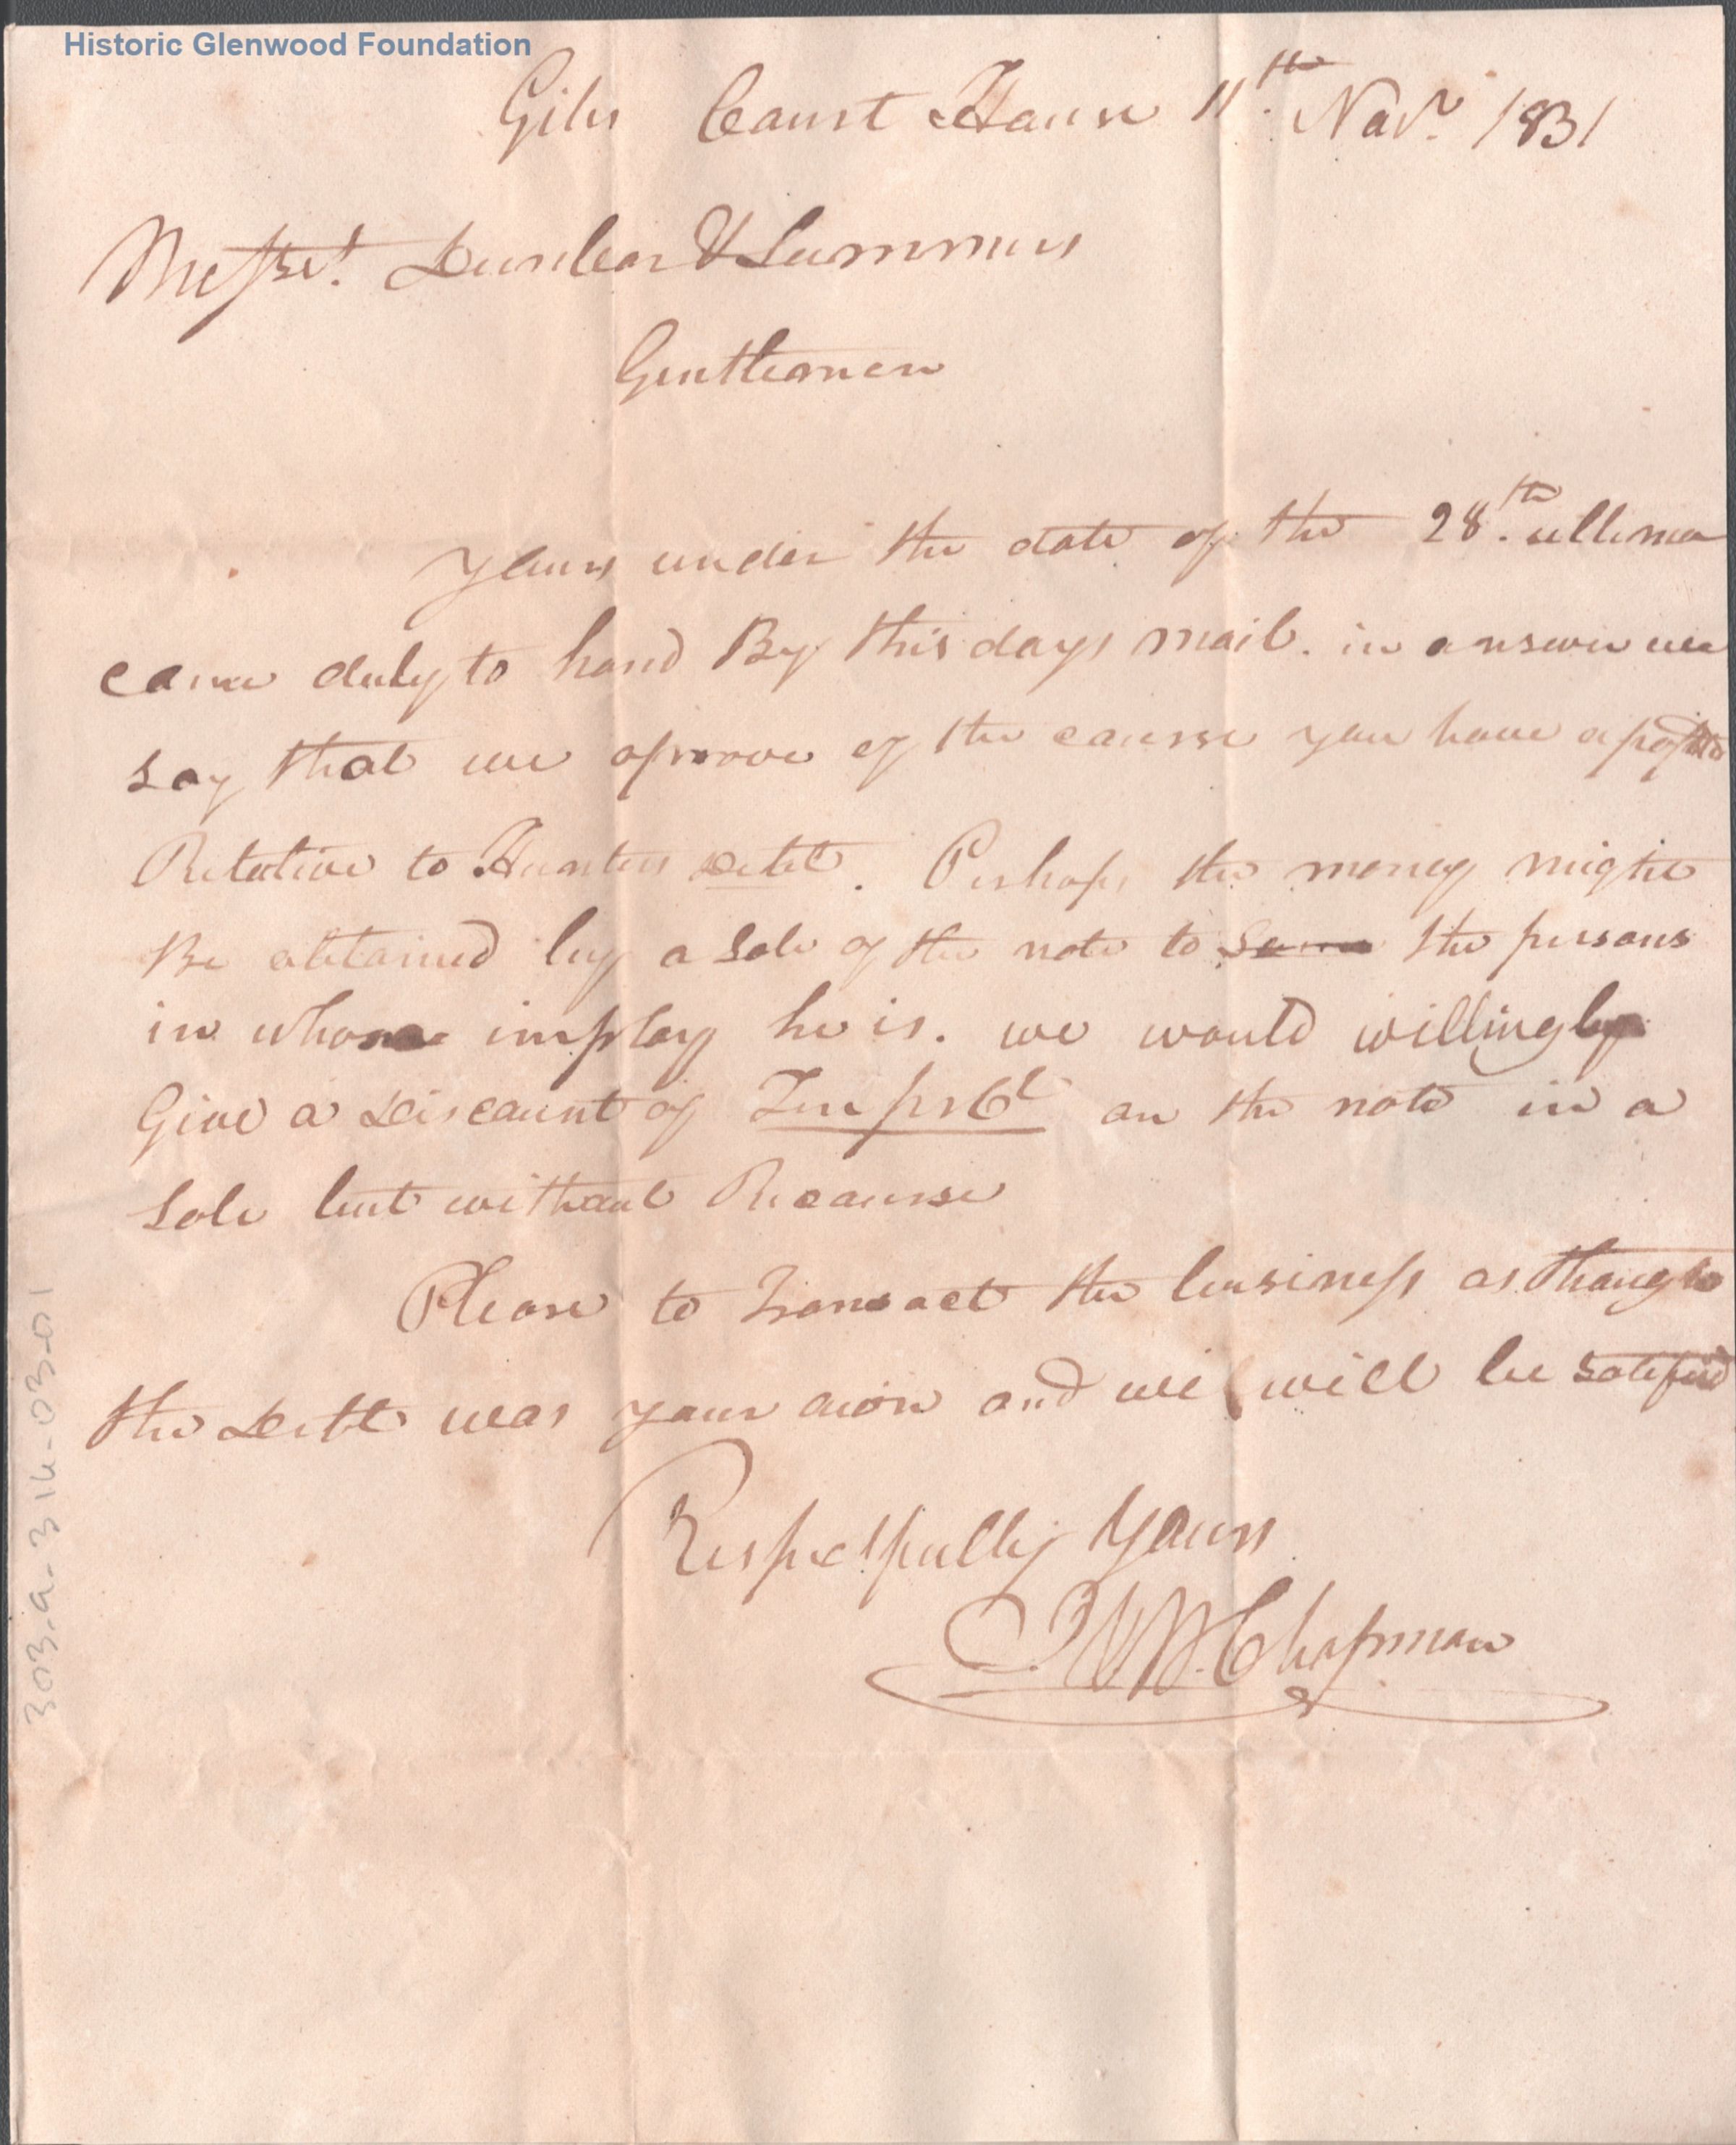 Historic Glenwood Foundation
Giles Court House 11th Novr 1831
Messrs. Dunbar & Summers
Gentlemen
yours under the date of the 28th. ultimo
came duly to hand By this days mail. in answer we
say that we aprove of the course you have
Relative to Hunters Debt. Perhaps the money might
Be obtained by a sale of the note to some the persons
in whose imploy he is. we would willingly
Give a Discount of Ten pr Ct on the note in a
sale but without Recourse
Please to Transact the business as though
the Debt was your own and we will be satisfied
Respectfully Yours
Chapman
303.a.316-03-01